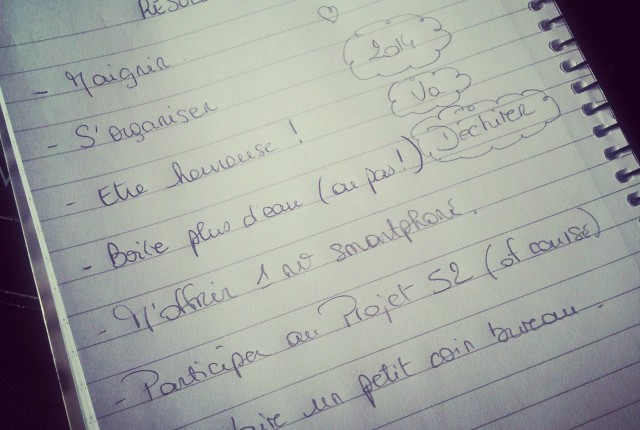 RÉSOL
- Maigrir.
2014
- S'organiser
Va
- Etre heureuse !
Déchirer
- Boire plus d'eau (ou pas!)
- M'offrir 1 nv smartphone.
- Participer au Projet 52 (of course)
faire un petit coin bureau.